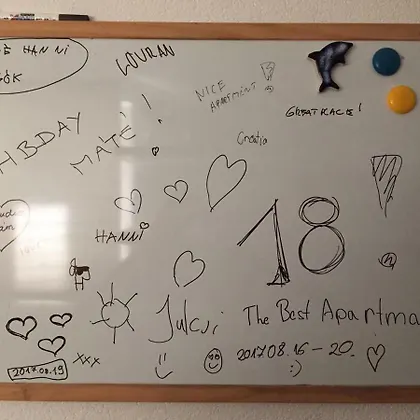 HANNI
LOURAN
NICE
APARTMENT!
GREAT PLACE!
HBDAY
MATÉ!!
Croatia
HANNI
18
Julcsi
The Best Apartma
2017.08.16-20.
:)
2017.08.19
xxx